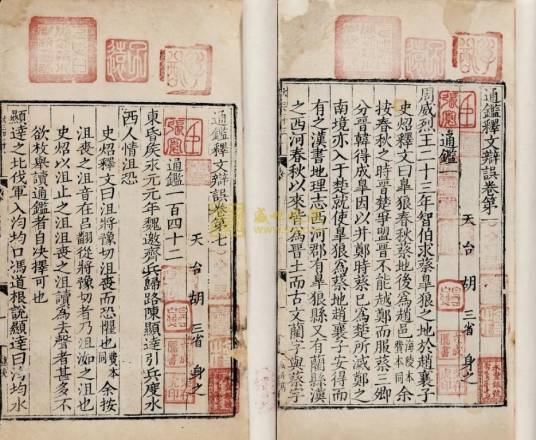 通鑑釋文辯誤卷第一
天台胡三省身之
通鑑一
周威烈王二十三年智伯求蔡皋狼之地於趙襄子
史炤釋文曰皋狼春秋蔡地後為趙邑海陵本費本同余
按春秋之時晉楚爭盟晉不能越鄭而服蔡三卿
分晉韓得成皋因以并鄭時蔡已為楚所滅鄭之
南境亦入于楚就使皋狼為蔡地趙襄子安得而
有之漢書地理志西河郡有皋狼縣又有藺縣漢
之西河春秋以來皆為晉土而古文藺字與蔡
通鑑釋文辯誤卷第七
天台胡三省身之
通鑑一百四十二
東昏侯永元元年魏邀齊兵歸路陳顯達引兵度水
西人情沮恐
史炤釋文曰沮將豫切沮喪而恐懼也費本同余按
沮喪之沮音在呂翻從將豫切者乃沮洳之沮也
史炤以沮止之沮沮喪之沮讀為去聲者甚多不
欲枚舉讀通鑑者自決擇可也
顯達之北伐軍入汮均口馮道根說顯達曰汮均水